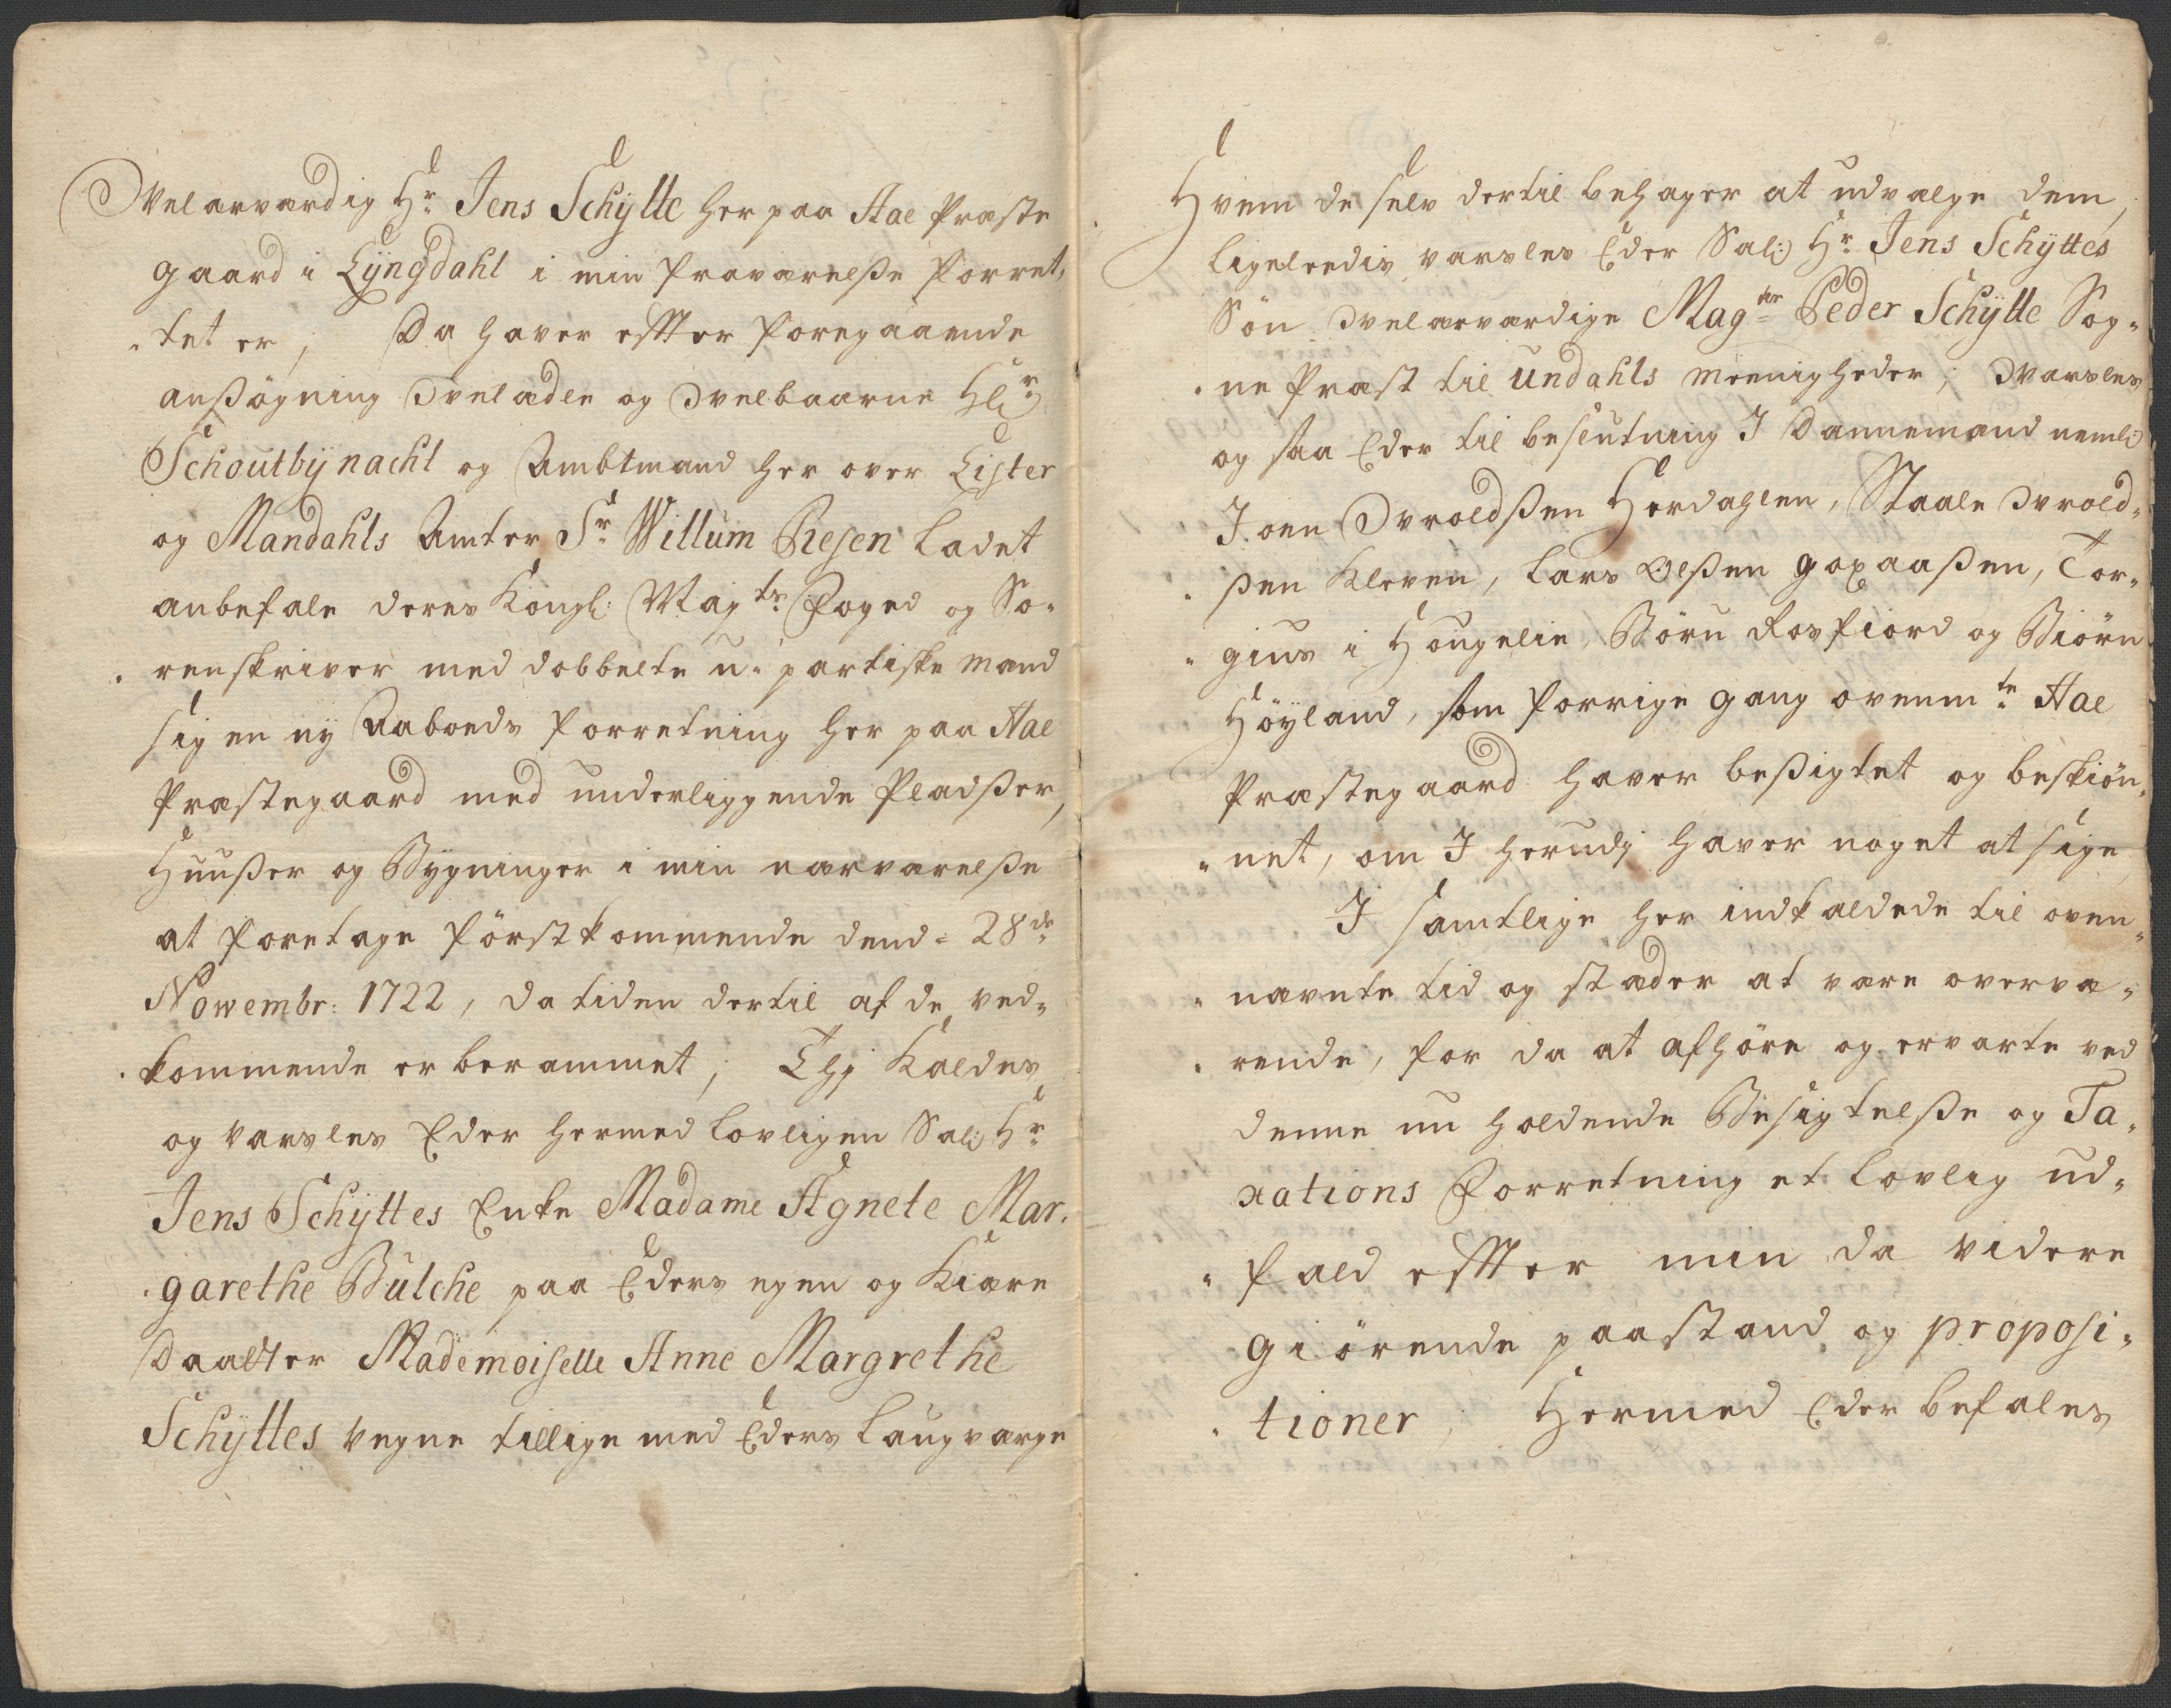 Velærværdig Hr Jens Schÿtte her paa Aae Præste
gaard i Lÿngdahl i min præværelsse forret,
tet er; Da haver effter foregaaende
anssögning Velædle og Velbaarne Hr
Schoutbÿnacht og Ambtmand her over Lister
og Mandahls Amter Sr Willum Resen ladet
anbefale deres Kongl: Maÿts Foged og So-
renskriver med dobbelte u-partiske mænd
sig en nÿ Aaboeds forretning her paa Aae
Præstegaard med underliggende Pladsser,
Huusser og Bÿgninger i min nærværelsse
at foretage förstkommende dend 28de
Nowembr: 1722, da tiden dertil af de ved-
kommende er berammet; Thj Kaldes
og varsles Eder hermed lovligen Sal: Hr
Jens Schÿttes Enke Madame Agnete Mar-
garethe Bulche paa Eders egen og Kiære
Daatter Mademoiselle Anne Margrethe
Schÿttes vegne tillige med Eders laugværge
Hvem de selv dertil behager at udvælge dem,
ligeleedis varsles Eder Sal: Hr Jens Schÿttes
Sön Velærværdige Magter Peder Schÿtte Sog-
ne Præst til Undahls meenigheder; Varsles
og saa Eder til beslutning I Dannemænd nemlig
Joen Tvroldssen Herdahlen, Staale Tvrold-
ssen Kleven, Lars Olssen goxaassen, Tor-
gius i Hougelie, Böru Rosfiord og Biörn
Höÿland, som forrige gang ovenmte Aae
Præstegaard haver bessigtet og beskiön-
net, om I herudj haver noget at sige
I samtlige her indkaldede til oven-
nævnte tid og stæder at være overvæ-
rende, for da at afhöre og ervarte ved
denne nu holdende Besigtelsse og Ta-
xations Forretning et lovlig ud-
fald effter min da videre
giörende paastand og proposi-
tioner; Hermed Eder befales